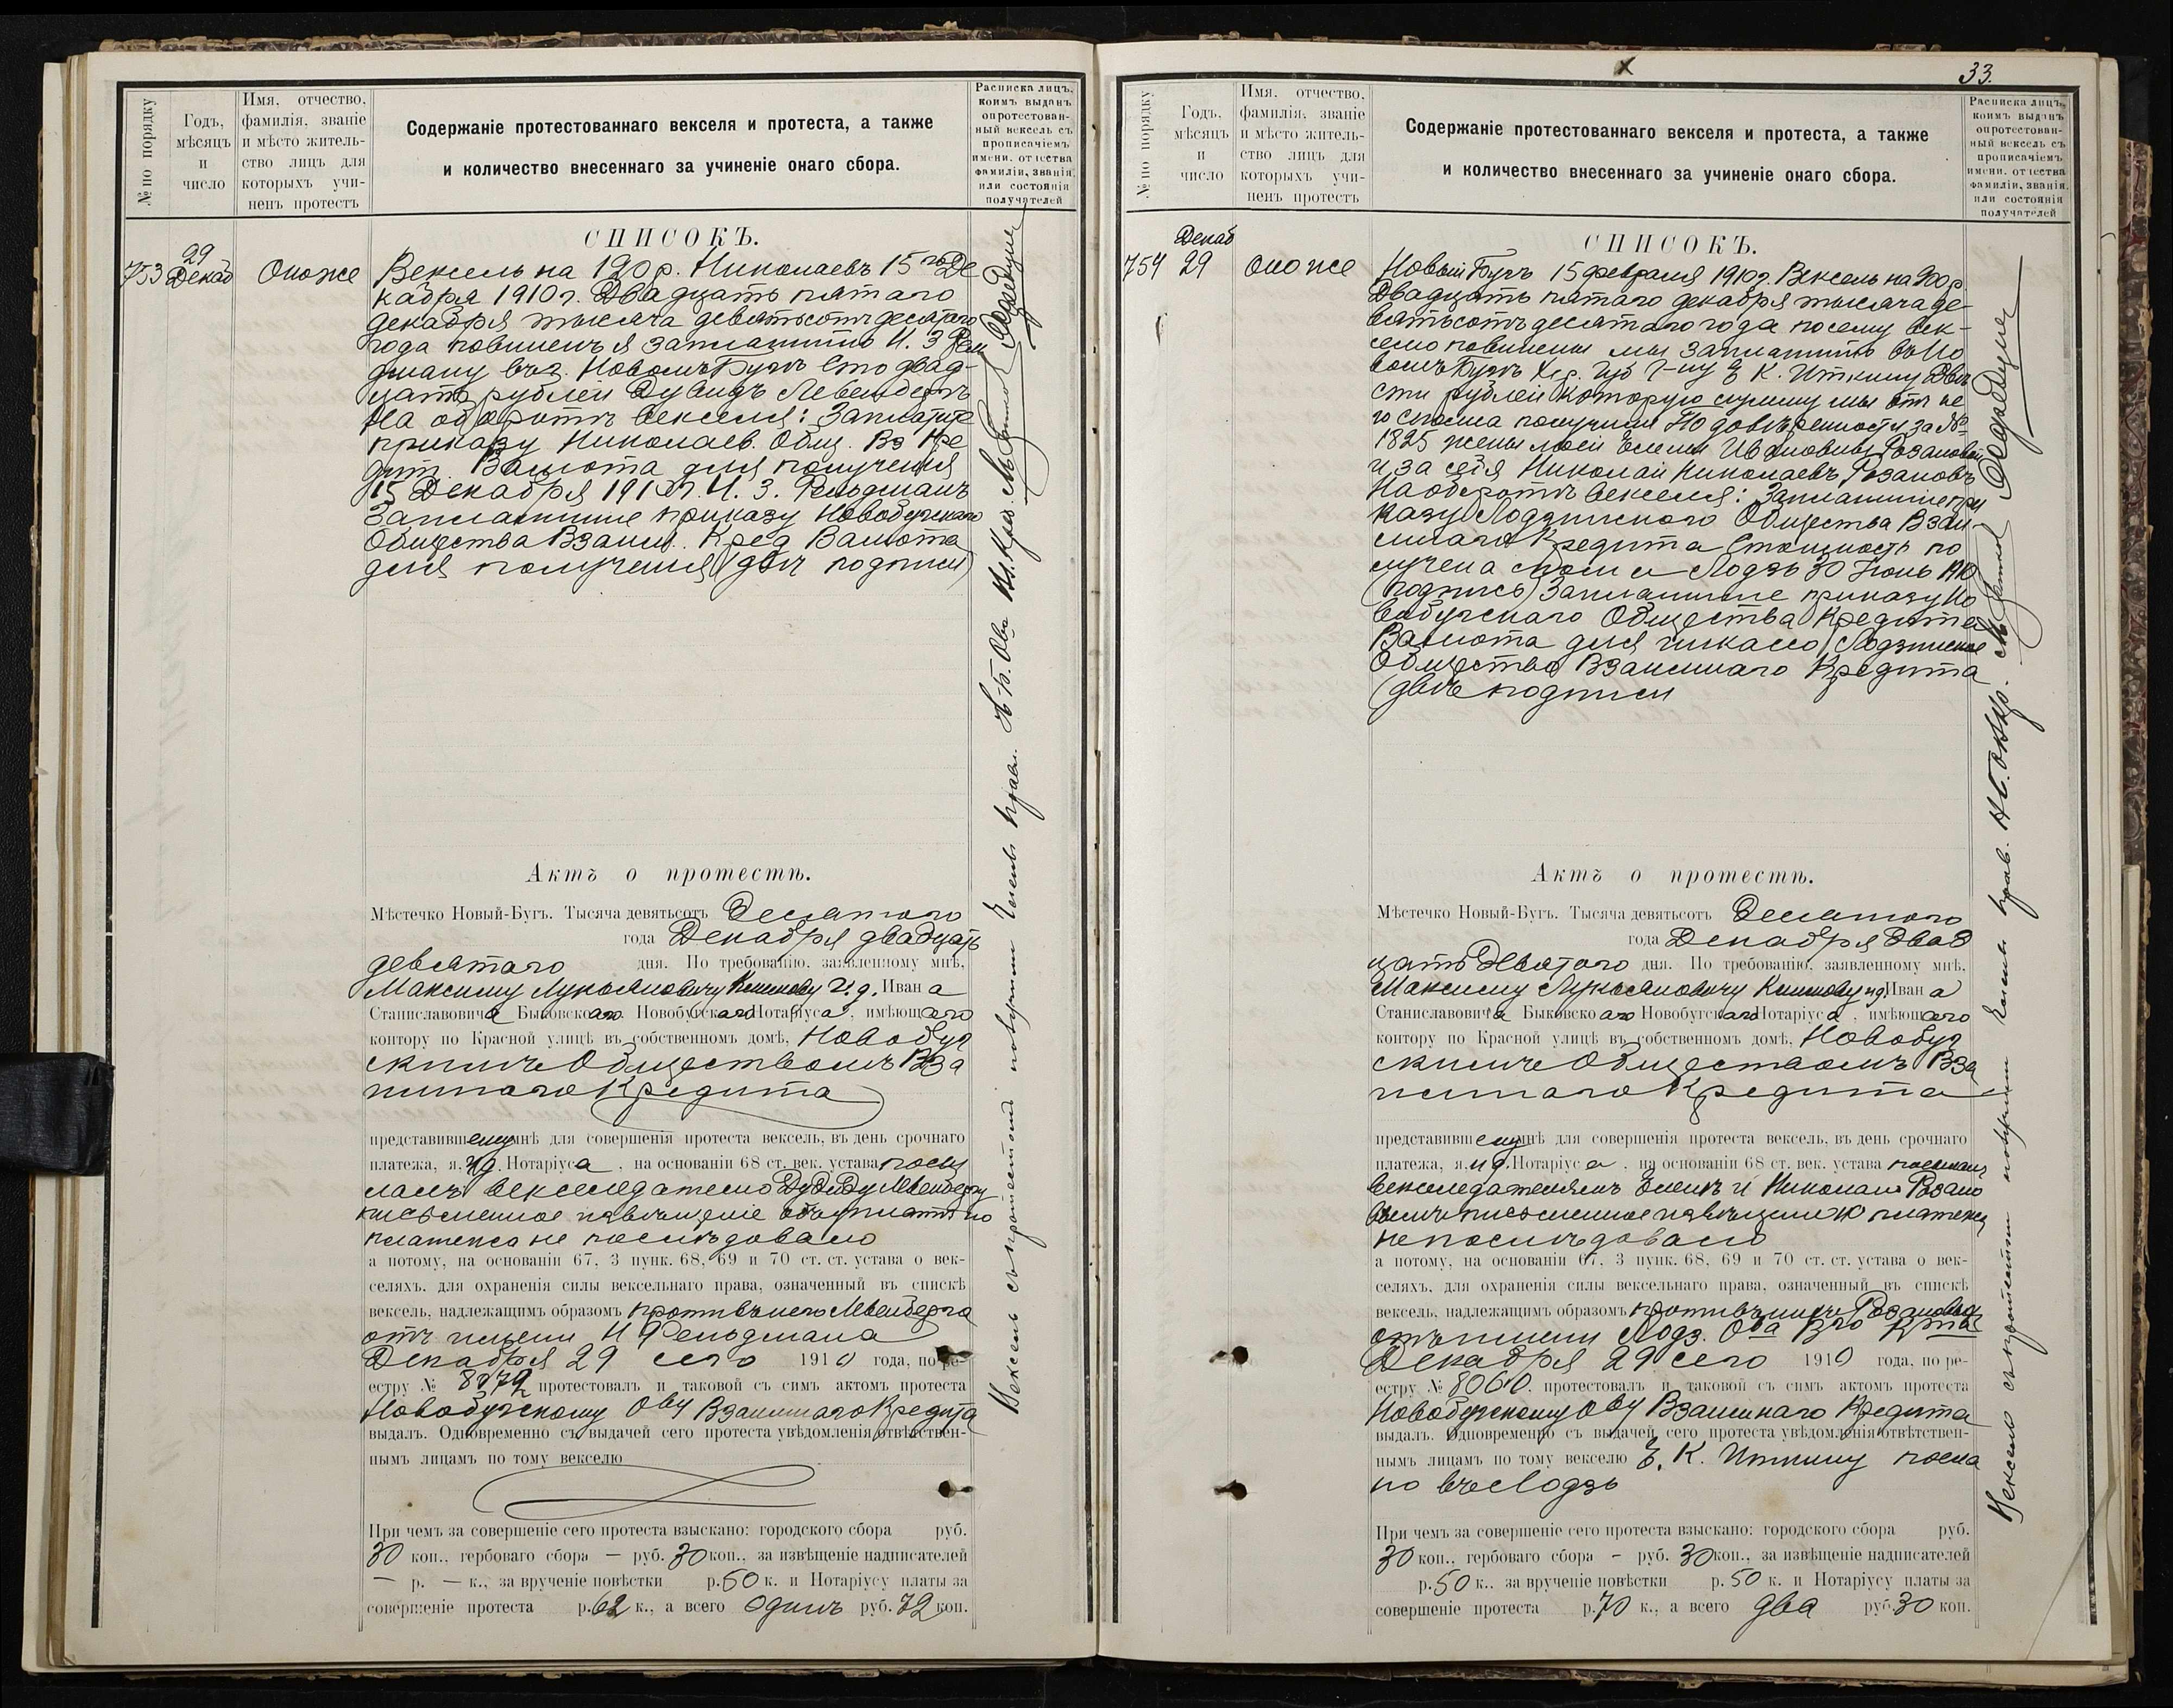 № по порядку
Годъ, мѣсяцъ и число
Имя, отчество, фамилія, званіе и мѣсто жительство лицъ для которыхъ учиненъ протестъ
Содержаніе протестованнаго векселя и протеста, а также
и количество внесеннаго за учиненіе онаго сбора.
Расписка лицъ, коимъ выданъ опротестованный вексель съ прописаніемъ имени, отчества фамиліи, званія или состоянія получателей
СПИСОКЪ.
753
29 Декаб
Оноже
Вексель на 120 р. Николаевъ 15го Де
кабря 1910 г. Двадцать пятаго
декабря тысяча девятьсотъ десятаго
года повиненъ я заплатить И. З. Фель
дману въ г. Новомъ Бугѣ Сто двад-
цать рублей Дувидъ Левенбергъ
На оборотѣ векселя: Заплатите
приказу Николаев. Общ. Вз Кре
дит. Валюта для получения
15 Декабря 1910 г. И. З. Фельдманъ
Заплатите приказу Новобугскаго
Общества Взаим. Кред Валюта
для получения (двѣ подписи)
Актъ о протестѣ.
Мѣстечко Новый-Бугъ. Тысяча девятьсотъ Десятого
года Декабря двадцать
девятаго дня. По требованію, заявленному мнѣ,
Максиму Лукьяновичу И. д. Ивана
Станиславовича Быковскаго Новобугскаго Нотаріуса, имѣющаго
контору по Красной улицѣ въ собственномъ домѣ, Новобуг
скимъ Обществомъ Вза
имнаго Кредита
представившему мнѣ для совершенія протеста вексель, въ день срочнаго
платежа, я, И д. Нотаріуса, на основаніи 68 ст. век. устава посы
лалъ векселедателю Дувиду Левенбергу
письменное извѣщеніе объ уплатѣ но
платежа не послѣдовало
а потому, на основаніи 67, 3 пунк. 68, 69 и 70 ст. ст. устава о век-
селяхъ, для охраненія силы вексельнаго права, означенный въ спискѣ
вексель, надлежащимъ образомъ противъ него Левенберга
отъ имени И Фельдмана
Декабря 29 сего 1910 года, по ре-
естру № протестовалъ и таковой съ симъ актомъ протеста
Новобугскому Обву Взаимнаго Кредита
выдалъ. Одновременно съ выдачей сего протеста увѣдомленія отвѣтствен-
нымъ лицамъ по тому векселю
При чемъ за совершеніе сего протеста взыскано: городского сбора руб.
30 коп., гербоваго сбора — руб. 30 коп., за извѣщеніе надписателей
— р. — к., за врученіе повѣстки р. 50 к. и Нотаріусу платы за
совершеніе протеста р. 62 к., а всего Одинъ руб. 72 коп.
Вексель съ протестомъ получилъ Членъ правл.
33.
№ по порядку
Годъ, мѣсяцъ и число
Имя, отчество, фамилія, званіе и мѣсто жительство лицъ для которыхъ учиненъ протестъ
Содержаніе протестованнаго векселя и протеста, а также
и количество внесеннаго за учиненіе онаго сбора.
Расписка лицъ, коимъ выданъ опротестованный вексель съ прописаніемъ имени, отчества фамиліи, званія или состоянія получателей
СПИСОКЪ.
754
Декаб 29
Оноже
Новый Бугъ 15 февраля 1910 г. Вексель на 200 р.
Двадцать пятаго декабря тысяча де-
вятьсотъ десятаго года по сему век-
селю повинны мы заплатить въ Но
вомъ Бугѣ Хер. Губ Г-ну Е К. Иткину Двѣ
сти рублей которую сумму мы отъ не
го сполна получили По довѣренности за №
1825 жены моей Елены Ивановны Розановой
и за себя Николай Николаевъ Розановъ
На оборотѣ векселя: Заплатите при
казу Лодзинского Общества Взаи-
мнаго Кредита Стоимость по
лучена сполна Лодзь 30 Июнь 1910
(подпись) Заплатите приказу Но
вобугскаго Общества Кредита
Валюта для инкассо Лодзинское
Общество Взаимнаго Кредита
(двѣ подписи
Актъ о протестѣ.
Мѣстечко Новый-Бугъ. Тысяча девятьсотъ Десятого
года Декабря двад
цать Девятого дня. По требованію, заявленному мнѣ,
Максиму Лукьяновичу и д. Ивана
Станиславовича Быковскаго Новобугскаго Нотаріуса, имѣющаго
контору по Красной улицѣ въ собственномъ домѣ, Новобуг
скимъ Обществомъ Вза
имнаго Кредита
представившему мнѣ для совершенія протеста вексель, въ день срочнаго
платежа, я, и д. Нотаріуса, на основаніи 68 ст. век. устава посылалъ
векселедателямъ Еленѣ и Николаю Розано
вымъ письменное извѣщение но платежа
не послѣдовало
а потому, на основаніи 67, 3 пунк. 68, 69 и 70 ст. ст. устава о век-
селяхъ, для охраненія силы вексельнаго права, означенный въ спискѣ
вексель, надлежащимъ образомъ противъ нихъ Розановыхъ
отъ имени Лодз. Ова Вго Крта
Декабря 29 сего 1910 года, по ре-
естру № 8060, протестовалъ и таковой съ симъ актомъ протеста
Новобугскому Обву Взаимнаго Кредита
выдалъ. Одновременно съ выдачей сего протеста увѣдомленія отвѣтствен-
нымъ лицамъ по тому векселю Е. К. Иткину посла
но въ Лодзь
При чемъ за совершеніе сего протеста взыскано: городского сбора руб.
30 коп., гербоваго сбора — руб. 30 коп., за извѣщеніе надписателей
р. 50 к., за врученіе повѣстки р. 50 к. и Нотаріусу платы за
совершеніе протеста р. 70 к., а всего два руб. 30 коп.
Вексель съ протестомъ получилъ Членъ прав.